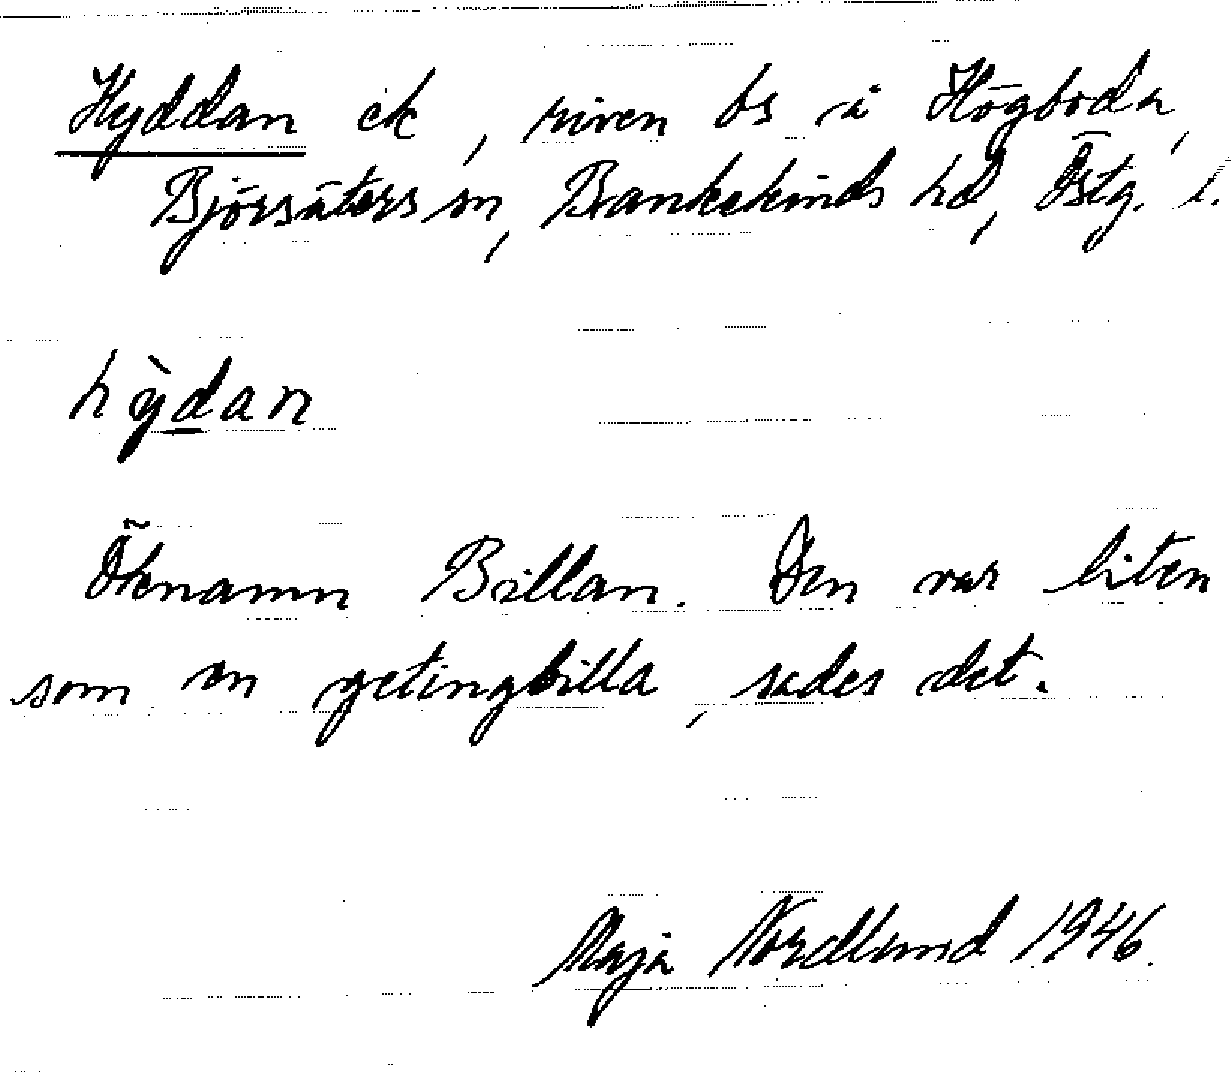 Hyddan ek, riven bs i Högboda,
Björsäters sn, Bankekinds hd, Östg. l.
hỳdan
Öknamn Billan. Den var liten
som en getingbilla, sades det.
Maja Nordlund 1946.